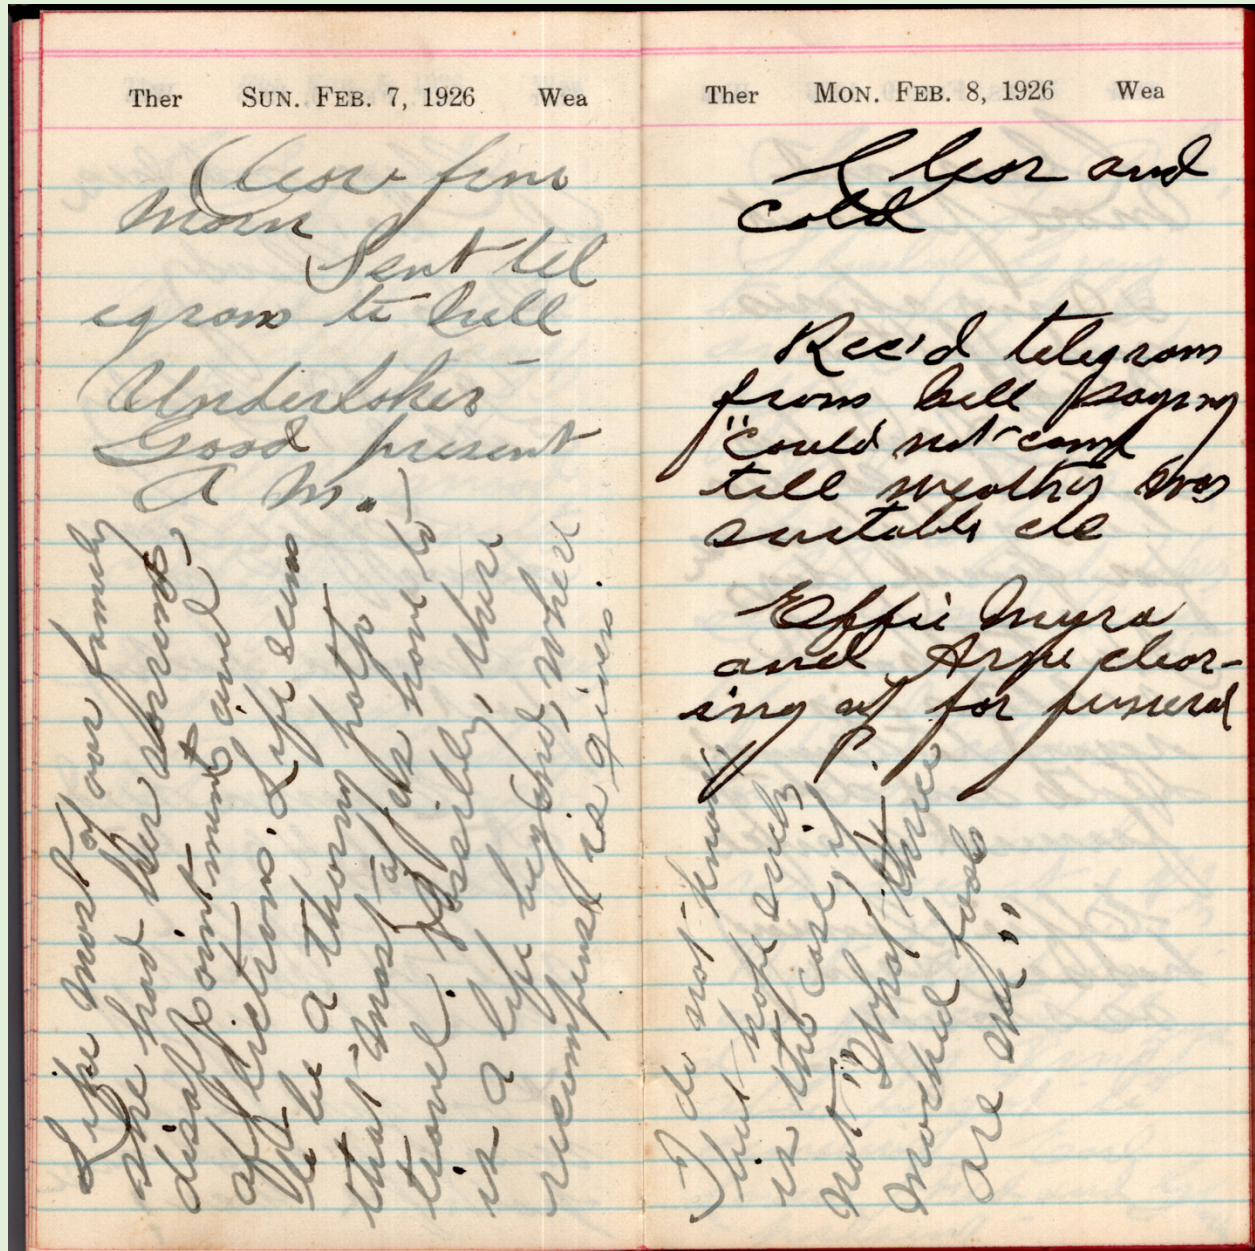 Ther SUN. FEB. 7, 1926 Wea
Clear fine
Morn
Sent tel
egram to bill
Undertaker
Good present
A M.
Like most of our family
she had her sorrows,
disappointment and
afflictions. Life seems
to be a thorny path
that most of us have to
travel. Possibly, there
is a life beyond, where
recompense is given.
Ther MON. FEB. 8, 1926 Wea
Clear and
cold
Rec'd telegram
from bill saying
"could not come
till weather was
suitable etc
Effie Myra
and Arpie clear-
ing up for funeral
I do not know
but hope such
is the case, if
not "What thrice
mocked fools
are we"